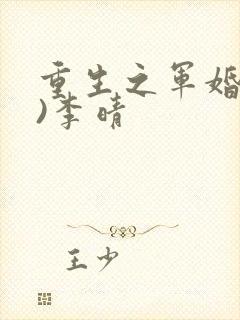 重生之军婚
)李晴
王少